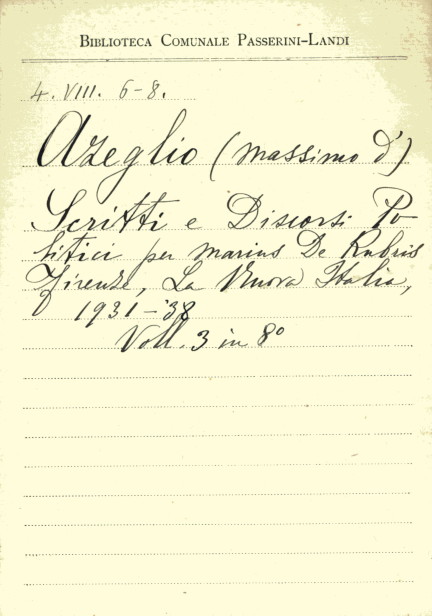 BIBLIOTECA COMUNALE PASSERINI-LANDI
4. VIII. 6-8.
Azeglio (Massimo d')
Scritti e Discorsi Po
litici per Marius De Rubris
Firenze, La Nuova Italia,
1931-'38
Voll. 3 in 8°